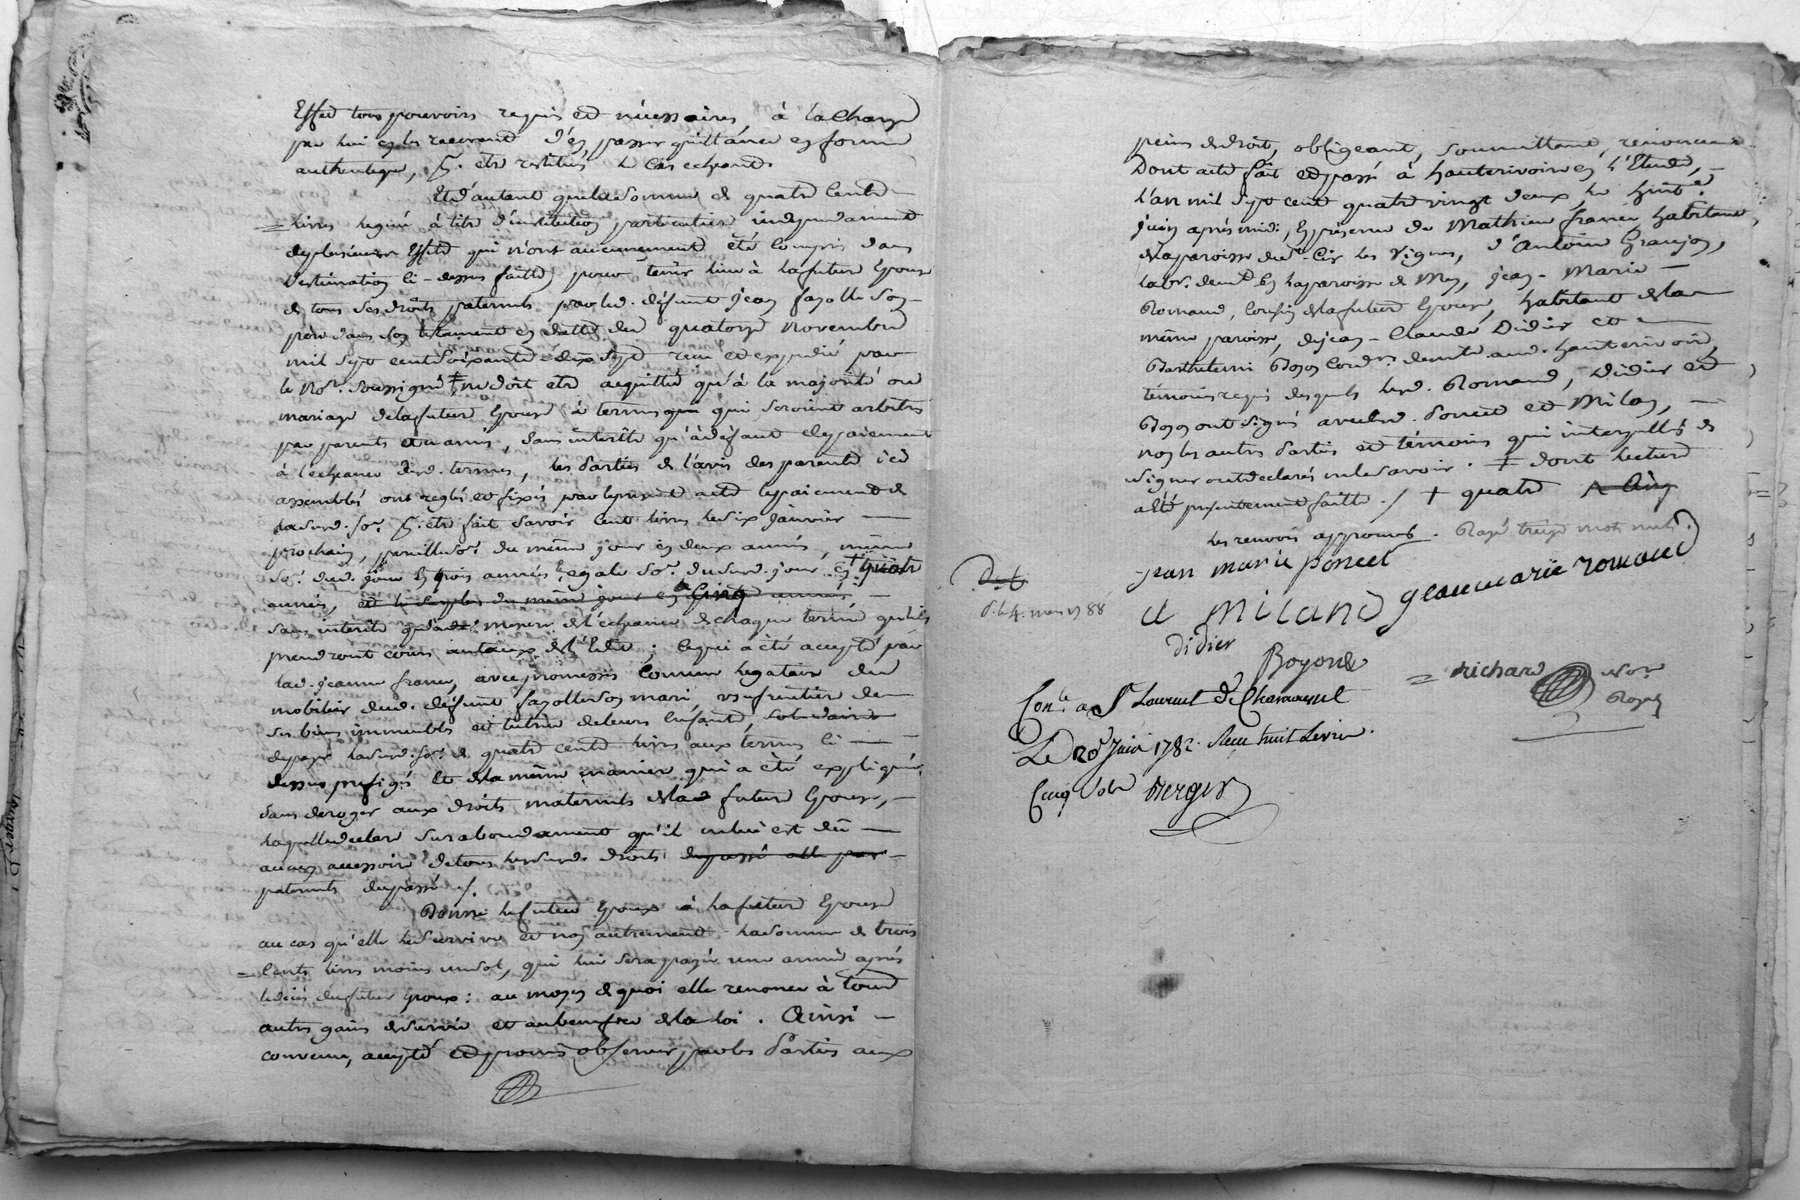 Effet tous pouvoirs requis et nécessaires, à la charge
par lui en les recevant d'en passer quittance en forme
authentique, pr. etre restitués le cas echeant.
Et d'autant que la somme de quatre Cents
livres leguée à titre d'institution particuliere independament
de plusieurs Effets qui n'ont aucunement été compris dans
l'estimation ci-dessus faitte, pour tenir lieu à la future Epouse
de tous ses droits paternels par led. défunt jean fayolle son
pere dans son testament en datte du quatorze novembre
mil sept cent soixante dix sept reçu et expedié par
le No.re soussigné ‡ ne doit etre acquittée qu'à la majorité ou
mariage de la future Epouse à termes qui seroient arbitrés
par parents et amis, sans interêts qu'à défaut de paiement
à l'echeance desd. termes, les Parties de l'avis des parents ici
assemblés ont reglés et fixés par le present acte le paiement de
lasusd. so.e pr. etre fait savoir cent livres le six janvier
prochain, pareille so.e du même jour en deux années, même
so.e dud. jour en trois années, egale so.e du susd. jour en + quatre
années, et le surplus du même jour en Cinq années
sans interêts qu'à mesure de l'echeance de chaque terme qu'ils
prendront cours au taux de l'Edit ; ce qui a été accepté par
lad. jeanne france, avec promesse comme legataire du
mobilier dud. défunt fayolle son mari, usufruitiere de
ses biens immeubles et tutrice de leurs Enfants, solidaire
de payer lasusd. so.e de quatre cents livres aux termes ci
dessus prefigés et de la même maniere qui a été expliquée,
sans deroger aux droits maternels de lad future Epouse,
laquelle declare surabondament qu'il ne lui est dû
aucun accessoire de tous lesusd. droits du passé all par
paternels du passé ./.
Donne le futur Epoux à la future Epouse
au cas qu'elle lui survive et non autrement la somme de trois
Cents livres moins un sol, qui lui sera payée une année après
le décès du futur Epoux : au moyen de quoi elle renonce à tous
autres gains de survie et au benefice de la loi. Ainsi
convenu, accepté et promis observer par les Parties aux
peines de droit, obligeant, soumettant, renonceant
Dont acte fait et passé à hauterivoire en l'Etude,
l'an mil sept cent quatre vingt deux, le huit
juin après midi, En présence de Mathieu france habitant
de la paroisse de St. Cir les Vignes, d'Antoine Granjon,
labr. demt. En la paroisse de Mey, jean-Marie
Romand, Cousin de la future Epouse, habitant de la
même paroisse, de jean-Claude Didier et
Barthelemi Boyon Cord.rs demts. aud. hauterivoire,
témoins requis desquels lesd. Romand, Didier et
Boyon ont signés avec led. Poncet et Milan,
non les autres Parties et témoins qui interpellés de
signer ont declarés ne le savoir. ‡ dont lecture
a été presentement faitte ./ + quatre Cinq
les renvois approuvés. Rayé treize mots nuls.
jean marie poncet
jean marie romand
C Miland
didier
Boyond
richard No.re
Royal
Con.lé a St Laurent de Chamousset
Le 20 Juin 1782. Recu huit Livres
Cinq sols Berger